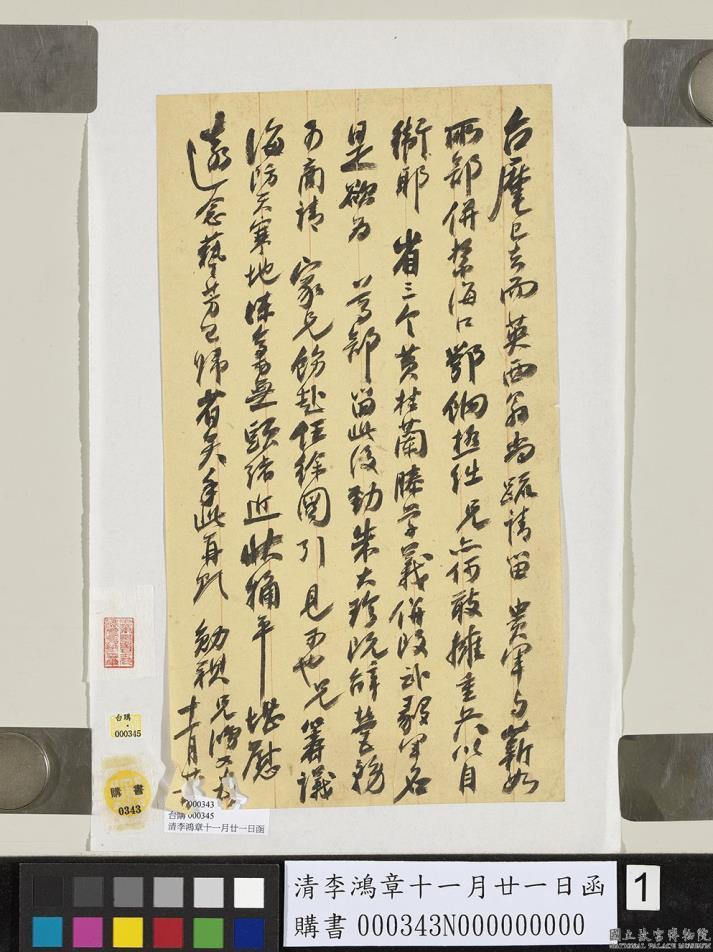 台麾已去而英西翁尚疏請留 貴軍与蘄如
所部併禁海口鄂餉極絀兄亦何敢擁重兵以自
衛耶 省三个黃桂蘭滕学義併改武毅軍名
是欲為 蕚部留此後勁朱大珍既辭營務
可商請 家兄飭赴任徐圖引見可也兄籌議
海防天寒地凍毫無頭緒近狀稍平堪慰
遠念藝芳已歸省矣手此再頌 勛祺 兄鴻又
十一月廿一
台購
000345
購書
0343
000343
台購 000345
清李鴻章十一月廿一日函
清李鴻章十一月廿一日函
購書 000343N000000000
1
國立故宮博物院
NATIONAL PALACE MUSEUM